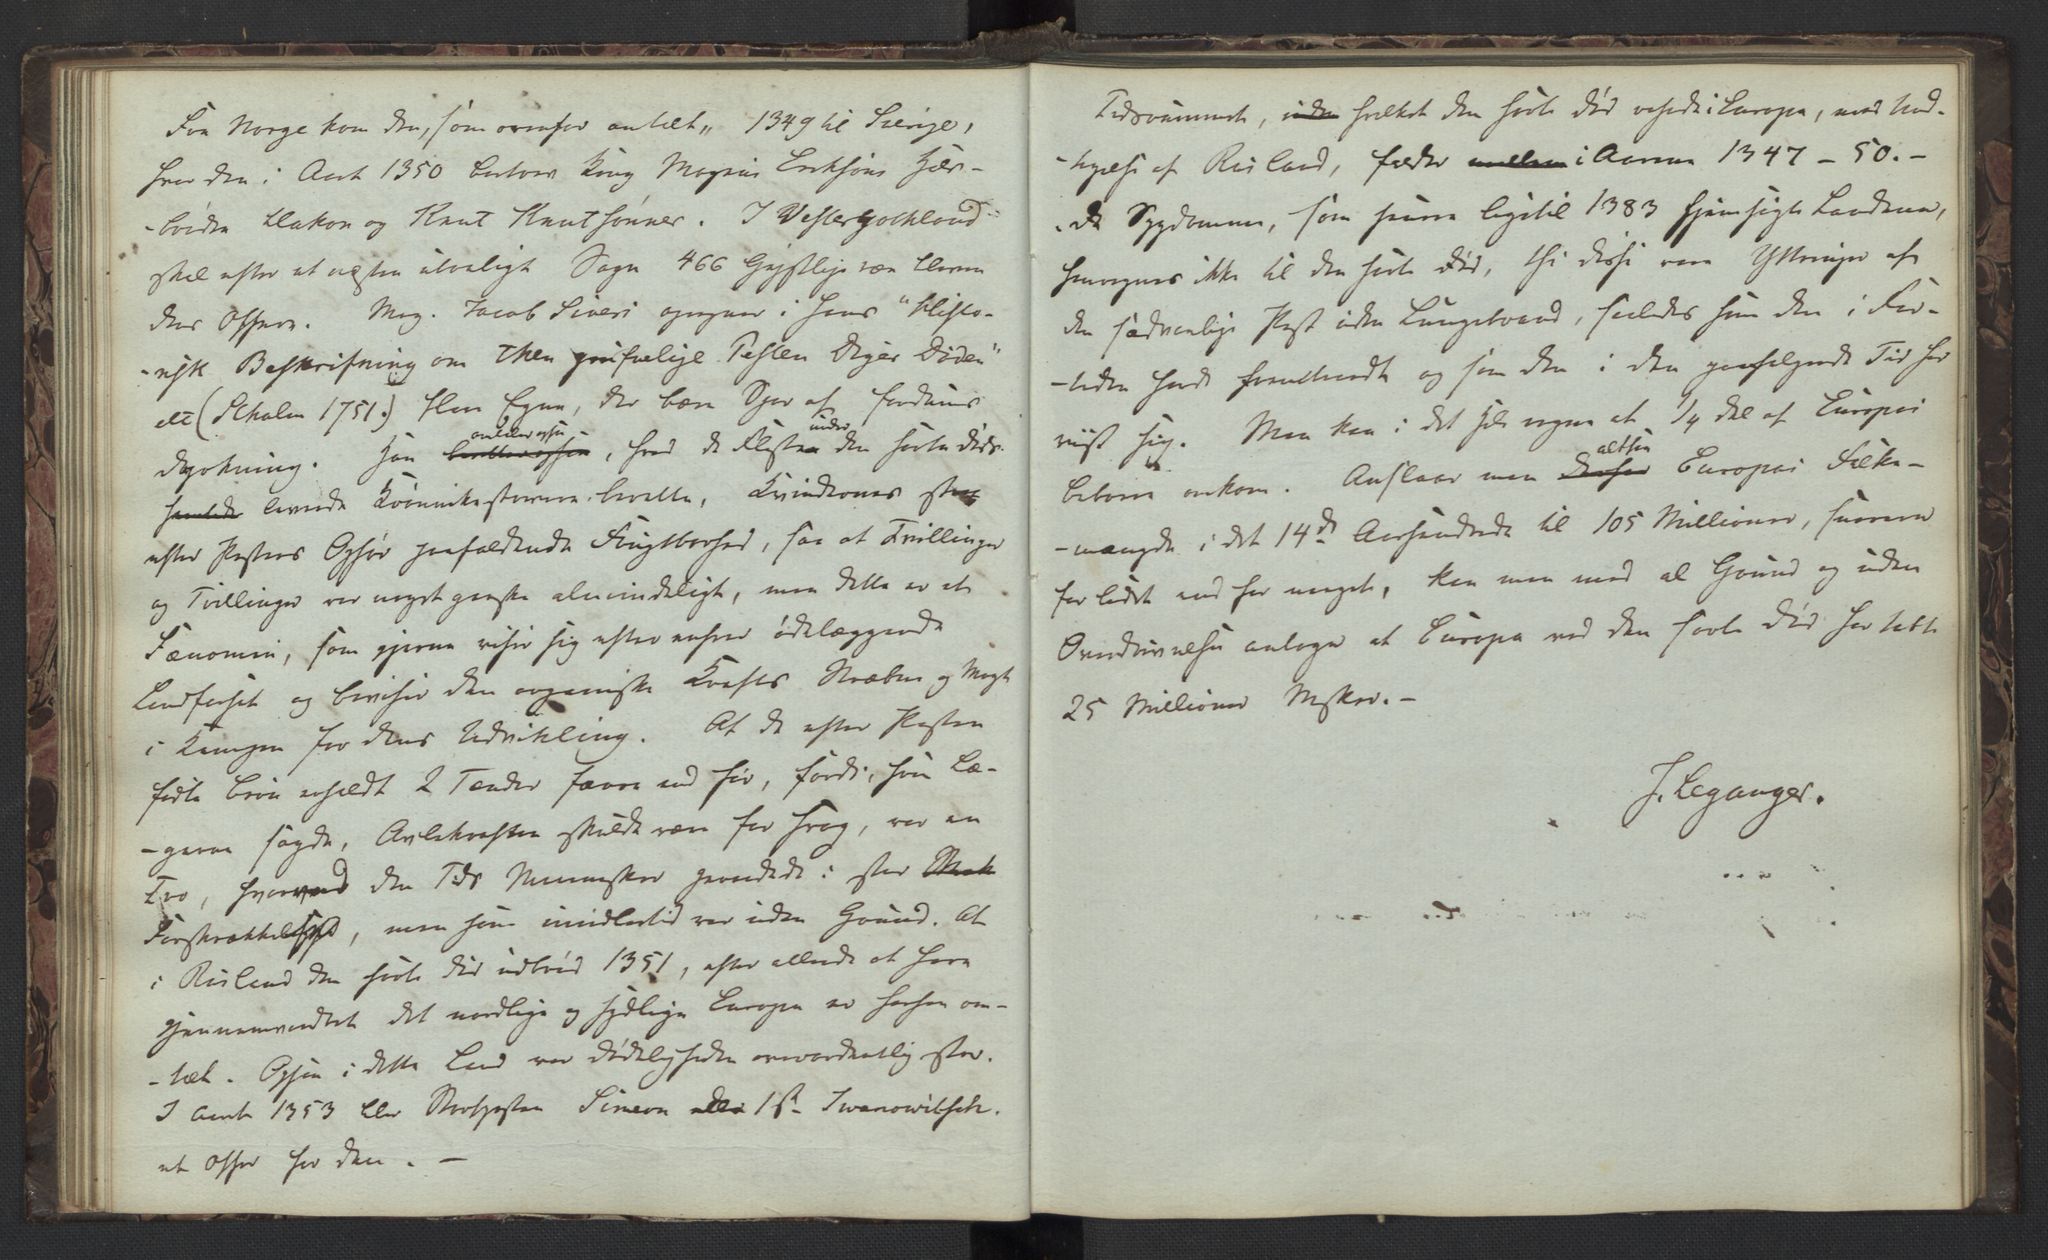 Fra Norge kom den, som ovenfor omtalt, 1349 til Sverige,
hvor den i Aaret 1350 berøver Kong Magnus Eriksøns Hælv-
-brødre Hakon og Knut Knutsønner. I Vestergothland
skal efter et næsten utroligt Sagn 466 Gejstlige være blevne
dens Offere. Mag. Jacob Siveri opregner i hans "Histo-
-risk Beskrifning om then grufvelige Pesten Diger Döden"
etc (Stholm 1751.) flere Egne, der bære Spor af fordums
dyrkning. Han anfører ogsaa, hvad de Fleste under den sorte Døds
levende Krønikestrivere berette, Kvindernes store
efter Pestens Ophør paafaldende Frugtbarhed, saa at Tvillinger
og Trillinger var noget ganske almindeligt, men dette er et
Fænomen, som gjerne viser sig efter enhver ødelæggende
Landfarsot og beviser den organiske Krafts Stræben og Magt
i Kampen for dens Udvikling. At de efter Pesten
fødte Børn erholdt 2 Tænder færre end før, fordi, som Læ-
-gerne sagde, Avlekraften skulde være for svag, var en
Tro, hvorved den Tids Mennesker geraadede i stor
Forskrækkelse, men som imidlertid var uden Grund. At
i Rusland den sorte Død udbrød 1351, efter allerede at have
gjennemvandret det nordlige og sydlige Europa er forhen om-
-talt. Ogsaa i dette Land var Dødeligheden overordentlig stor.
I Aaret 1353 blev Storfyrsten Simeon den 1st Iwanowitsch
et Offer for den. –
Tidsrummet, hvilket den sorte Død rasede i Europa, med Und-
-tagelse af Rusland, falder i Aarene 1347 – 50. –
De Sygdomme, som senere ligetil 1383 hjemsøgte Landene,
henregnes ikke til den sorte Død, thi disse vare Yttringer af
den sædvanlige Pest uden Lungebrand, saaledes som den i For-
-tiden havde fremtraadt og som den i den paafølgende Tid har
viist sig. Man kan i det Hele regne at 1/4 del af Europas
Beboere omkom. Anslaar man altsaa Europas Folke-
-mængde i det 14de Aarhundrede til 105 Millioner, snarere
for lidet end for meget, kan man med al Grund og uden
Overdrivelse antage at Europa ved den sorte Død har tabt
25 Millioner Msker. –
J. Leganger.